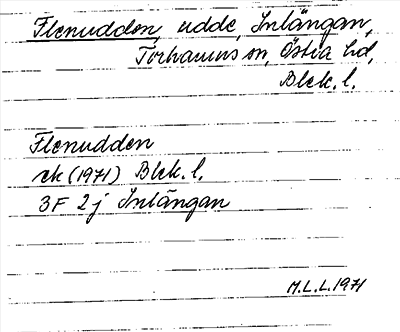 Flenudden, udde, Inlängan,
Torhamns sn, Östra hd,
Blek. l.
Flenudden
ek (1971) Blek. l.
3F 2j Inlängan
M.L.L. 1971